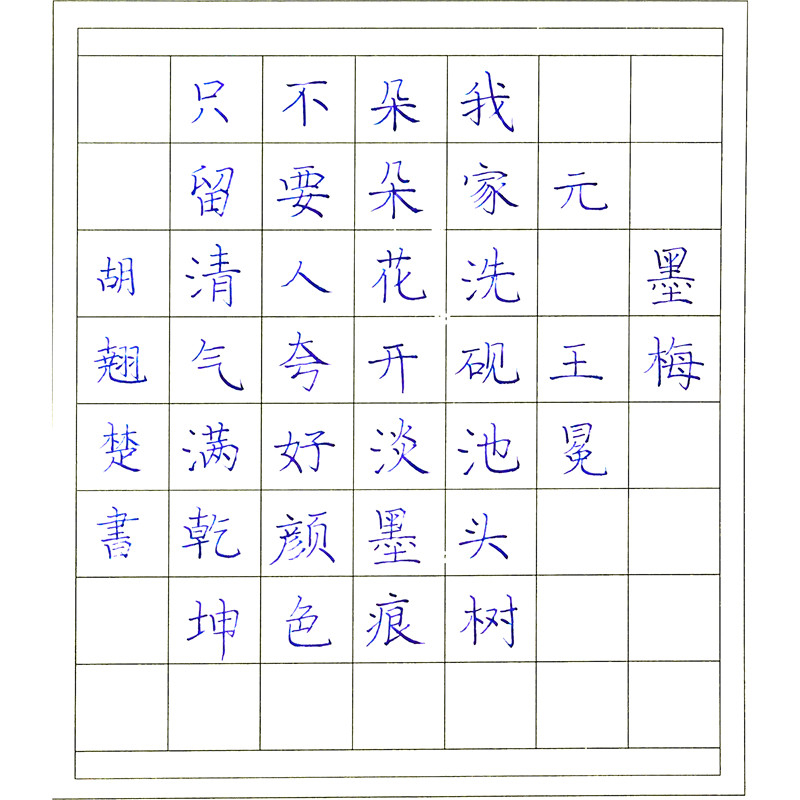 墨梅
元王冕
我家洗砚池头树
朵朵花开淡墨痕
不要人夸好颜色
只留清气满乾坤
胡翘楚書